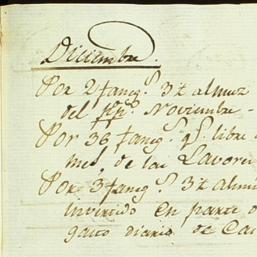 Diciembre.
Por 2 faneg.s 3 z almuz
del pp.o Noviembre -
Por 36 faneg.s q.e libre
mes, de las Lavores
Por 3 faneg.s 3 z almu
invertido en parte
gasto diario de Ca